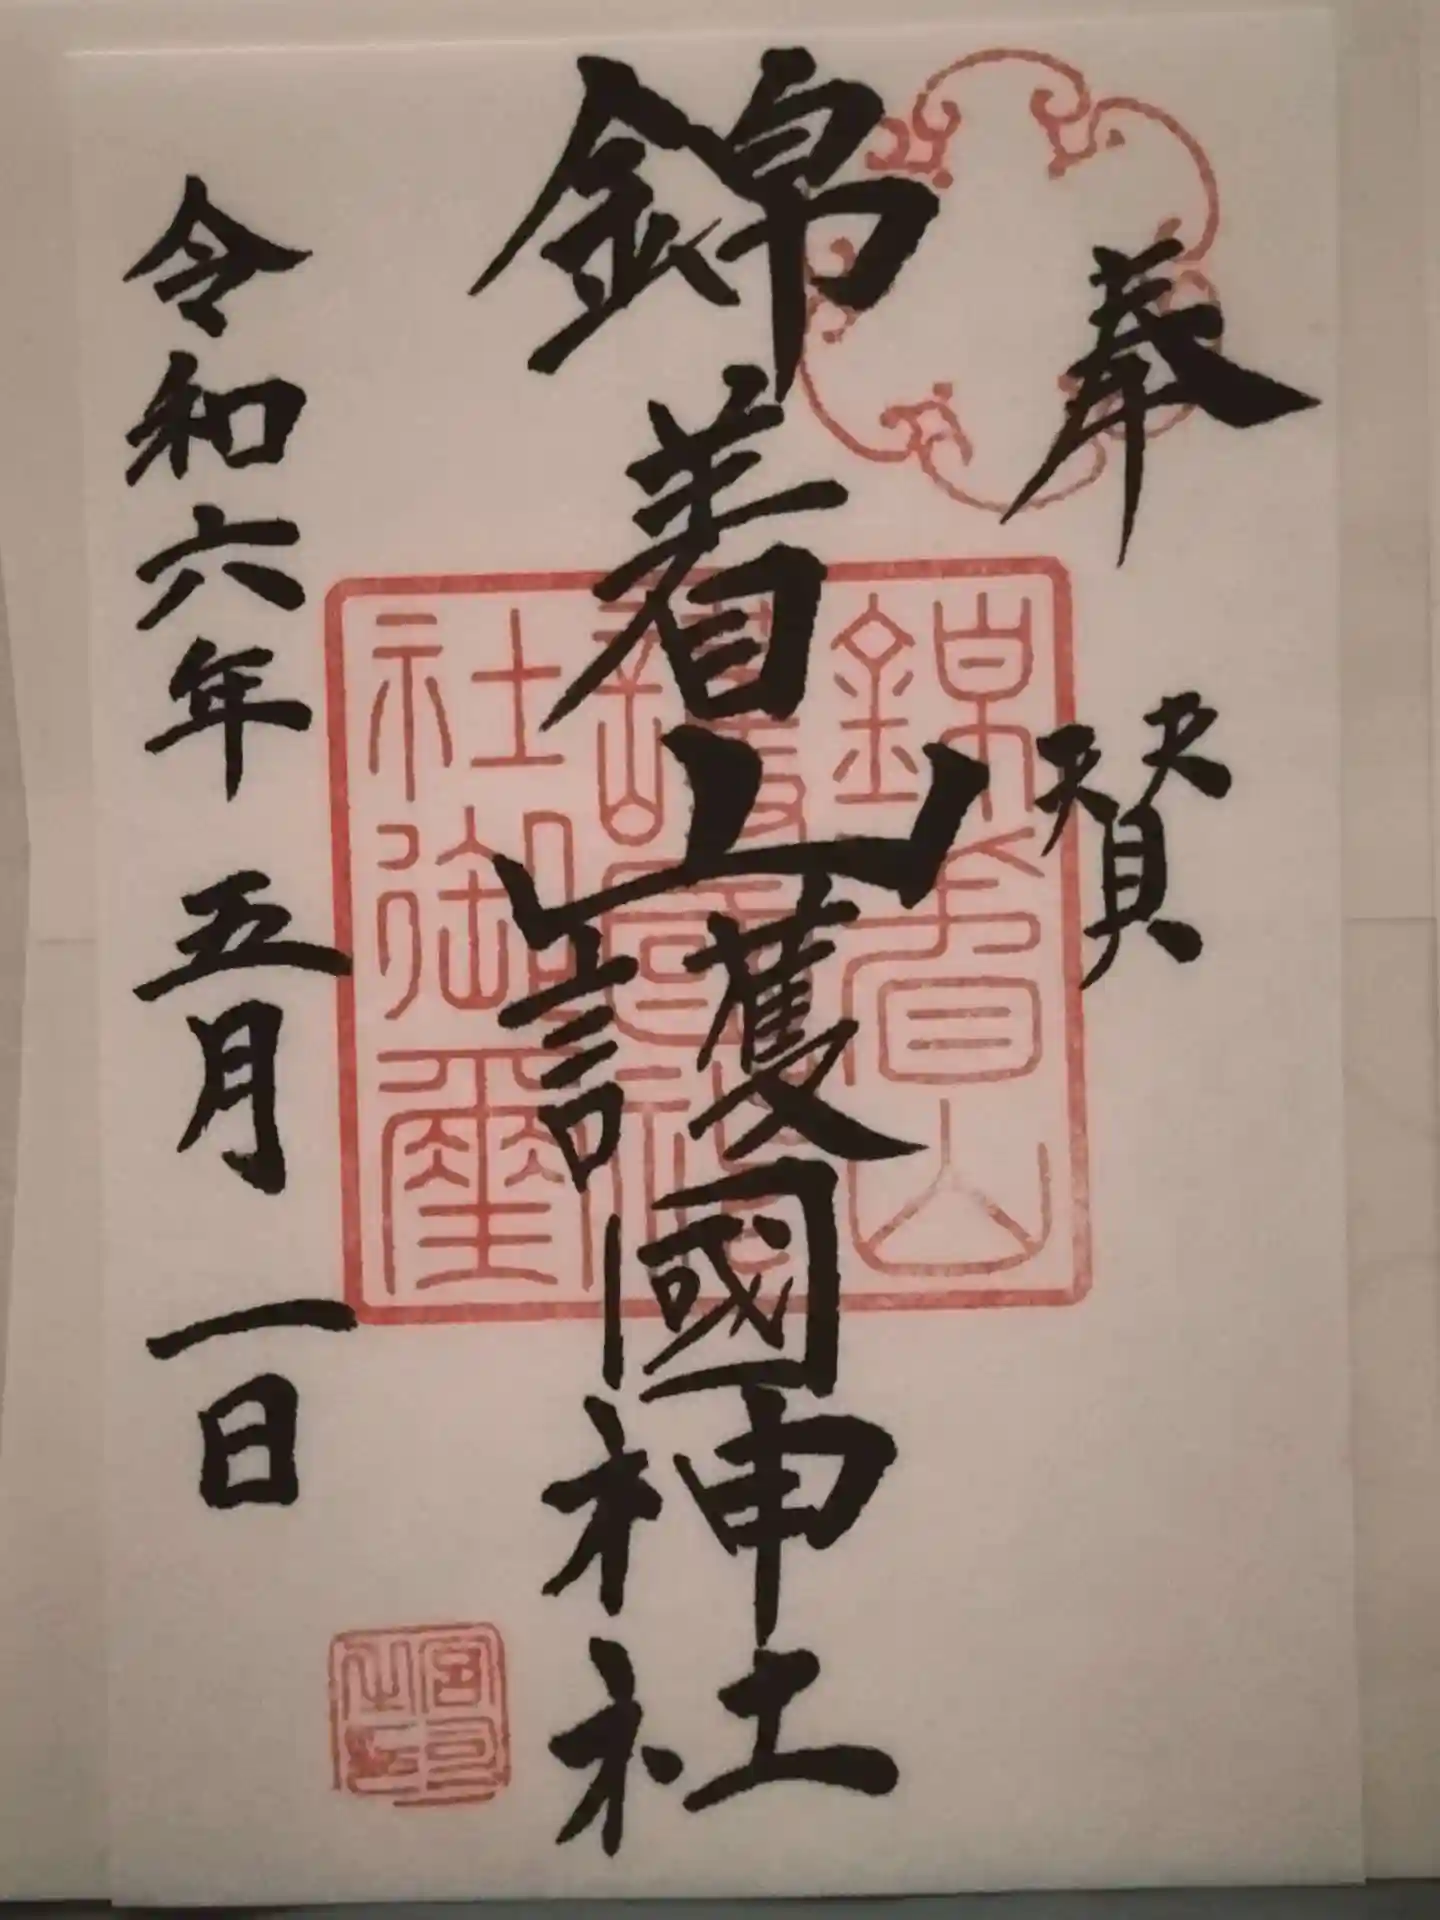 奉賛
錦着山護國神社
令和六年五月一日
錦着山
護國神
社御璽
宮司
之印